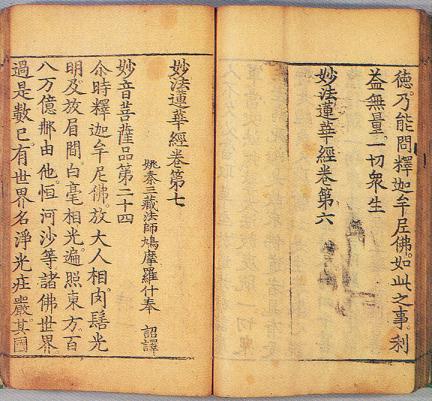 德。乃能問釋迦牟尼佛。如此之事。利
益無量。一切衆生
妙法蓮華經卷第六
妙法蓮華經卷第七
姚秦三藏法師鳩摩羅什奉 詔譯
妙音菩薩品第二十四
尒時釋迦牟尼佛。放大人相。肉髻光
明。及放眉間。白毫相光。遍照東方。百
八万億那由他。恒河沙等諸佛世界。
過是數已。有世界名淨光莊嚴。其國